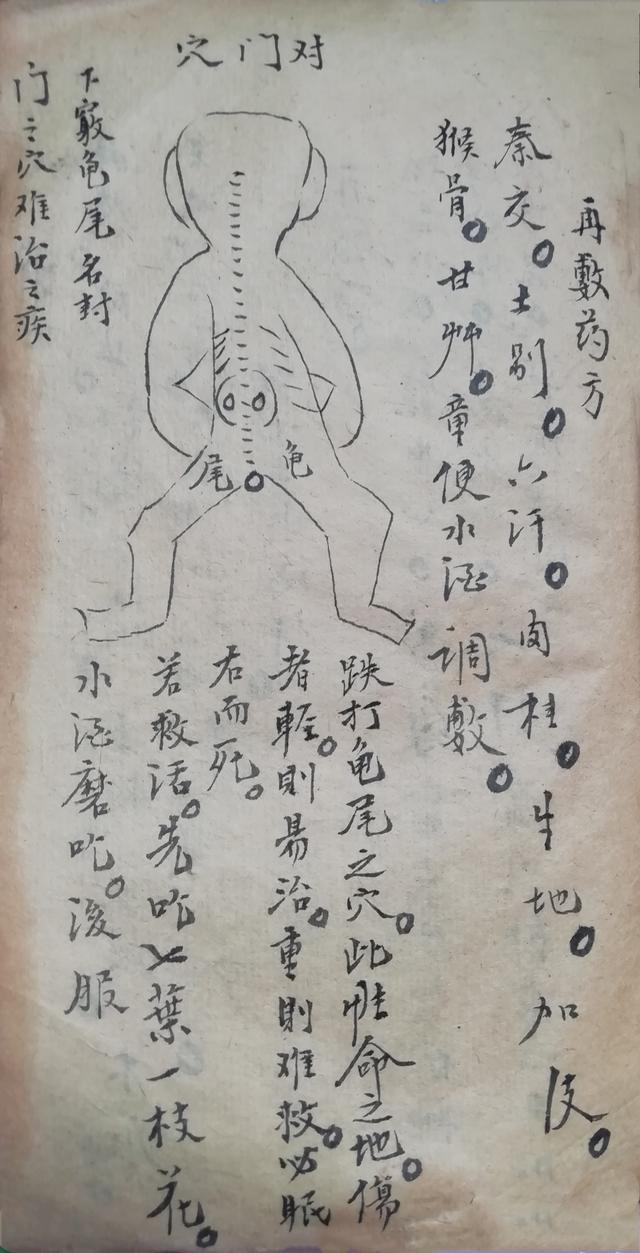 对门穴
再敷药方
秦交。土别。六汗。肉桂。生地。加皮。
猴骨。甘艸。童便水酒调敷。
龟尾
跌打龟尾之穴。此性命之地。傷
者輕。則易治。重則难救。必眠
右而死。
若救活。先吃七葉一枝花。
水酒磨吃。後服
下竅龟尾名封
门之穴难治之疾